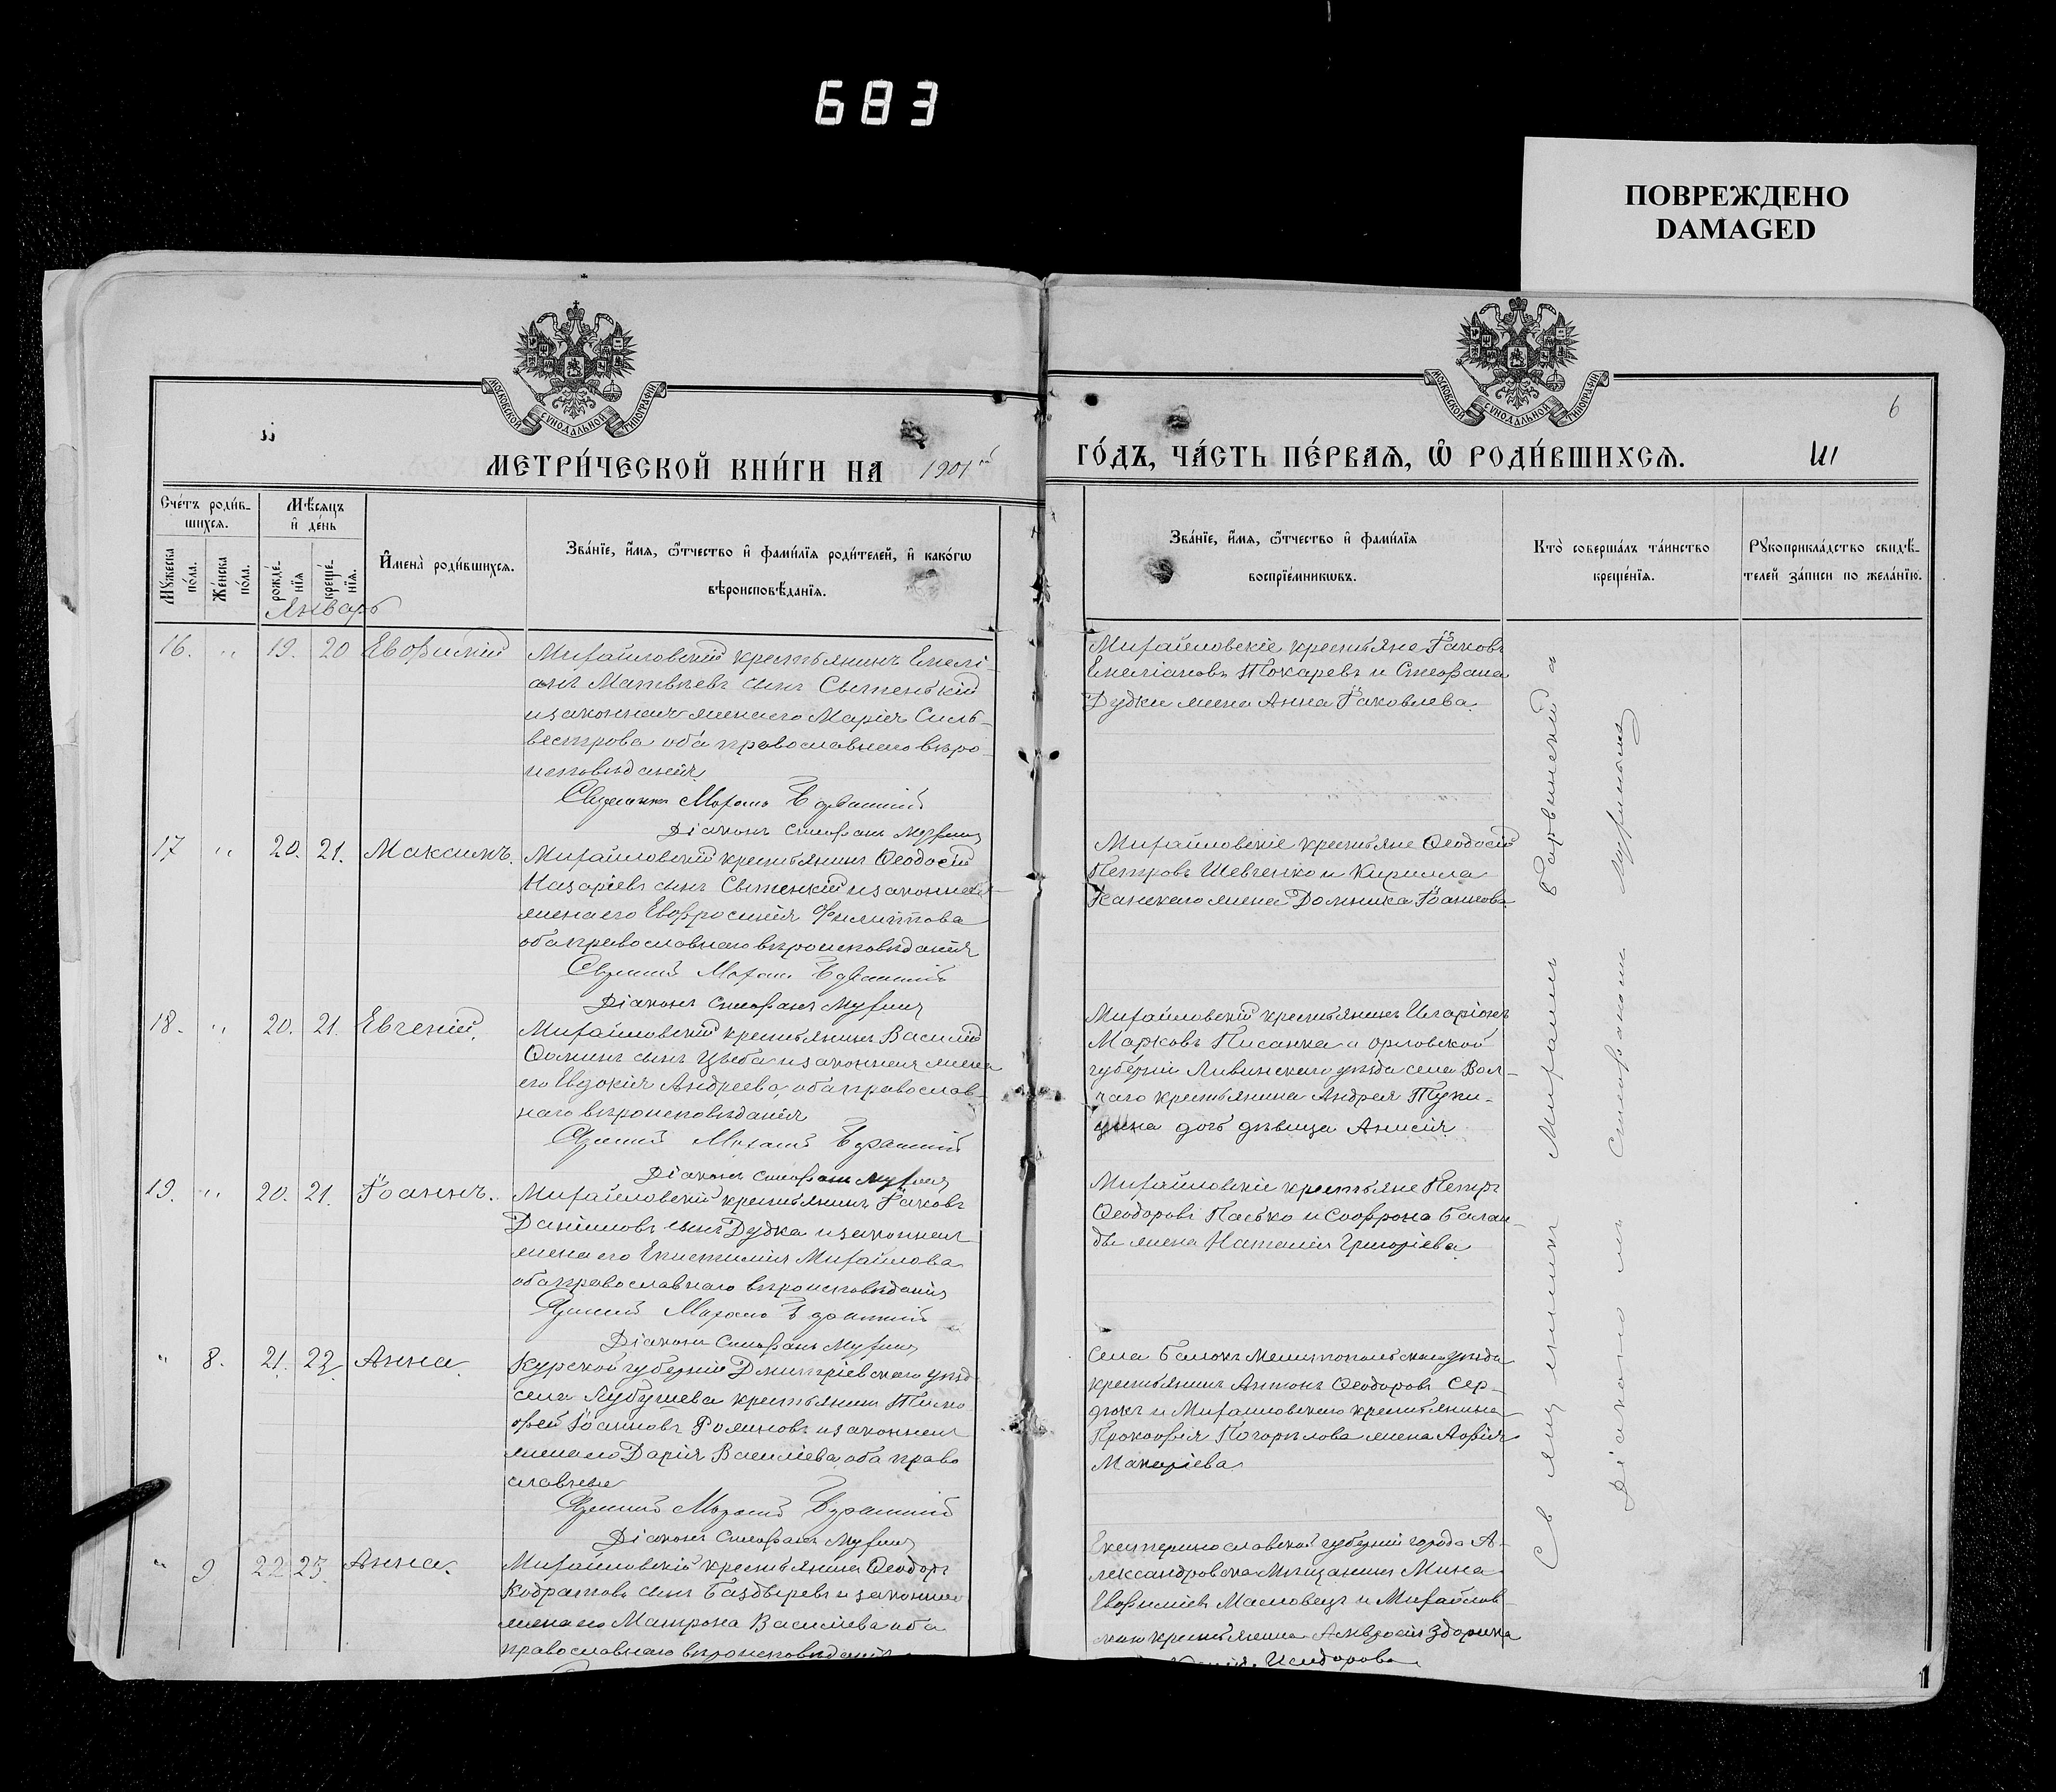 683
ПОВРЕЖДЕНО
DAMAGED
МОСКОВСКОЙ СѴНОДАЛЬНОЙ ТИПОГРАФІИ
МОСКОВСКОЙ СѴНОДАЛЬНОЙ ТИПОГРАФІИ
6
МЕТРИ́ЧЕСКОЙ КНИ́ГИ НА 1901
ГО́ДЪ, ЧА́СТЬ ПЕ́РВАѦ, Ѡ҆ РОДИ́ВШИХСѦ.
Сче́тъ роди́в-
шихсѧ.
Мѣ́сѧцъ
и҆ де́нь
Мꙋ́жеска по́ла.
Же́нска по́ла.
рожде́-
нїѧ
креще́-
нїѧ.
И҆мена̀ роди́вшихсѧ.
Зва́нїе, и҆́мѧ, ѻ҆́тчество и҆ фами́лїѧ роди́телей, и҆ како́гѡ
вѣроисповѣ́данїѧ.
Зва́нїе, и҆́мѧ, ѻ҆́тчество и҆ фами́лїѧ
воспрїе́мникѡвъ.
Кто̀ соверша́лъ та́инство
креще́нїѧ.
Рꙋкоприкла́дство свидѣ́-
телей за́писи по жела́нїю.
Январь
16. " 19. 20 Евѳимій
Михайловскій крестьянинъ Емелі-
анъ Матвѣевъ сынъ Свѣтенькій
и законная жена его Марія Силь-
вестрова оба православнаго вѣро
исповѣданія.
Діаконъ Стефанъ
Михайловскіе крестьяне Іаковъ
Емеліановъ Токаревъ и Стефана
Дудки жена Анна Іаковлева.
17 " 20. 21. Максимъ.
Михайловскій крестьянинъ Ѳеодосій
Назаріевъ сынъ Свѣтенкій и законная
жена его Евфросинія Филиппова
оба православнаго вѣроисповѣданія
Діаконъ Стефанъ
Михайловскіе крестьяне Ѳеодосій
Петровъ Шевченко и Кирилла
жена Домника Іоаннова
18. " 20. 21. Евгеній.
Михайловскій крестьянинъ Василій
Ѳоминъ сынъ и законная жена
его Евдокія Андреева, оба православ-
наго вѣроисповѣданія
Діаконъ Стефанъ
Михайловскій крестьянинъ Иларіонъ
Марковъ Писанка и Орловской
губерніи Ливинскаго уѣзда села Вол-
чаго крестьянина Андрея Тупи-
цина дочь дѣвица Анисія
19. " 20. 21. Іоаннъ.
Михайловскій крестьянинъ Іаковъ
Даніиловъ сынъ Дудка и законная
жена его Епистимія Михайлова
оба православнаго вѣроисповѣданія
Діаконъ Стефанъ
Михайловскіе крестьяне Петръ
Ѳеодоровъ Пасько и Софрона Балан-
ды жена Наталія Григоріева.
" 8. 21. 22. Анна.
Курской губерніи Дмитріевскаго уѣзд.
села крестьянинъ Тимо
фей Іоанновъ и законная
жена его Дарія Василіева, оба право
славные
Діаконъ Стефанъ
Села Балокъ Мелитопольскаго уѣзда
крестьянинъ Антонъ Ѳеодоровъ Сер-
дюкъ и Михайловскаго крестьянина
Прокофія Погорѣлова жена
Макаріева.
" 9 22 23. Анна.
Михайловскій крестьянинъ Ѳеодоръ
Кодратовъ сынъ и законная
жена его Матрона Василіева оба
православнаго вѣроисповѣданія
Екатеринославской губерніи города А-
лександровска мѣщанинъ Мина
Евѳиміевъ и Михайлов-
скаго крестьянина Амвросія
Исидорова
Священникъ
Діакономъ Стефаномъ